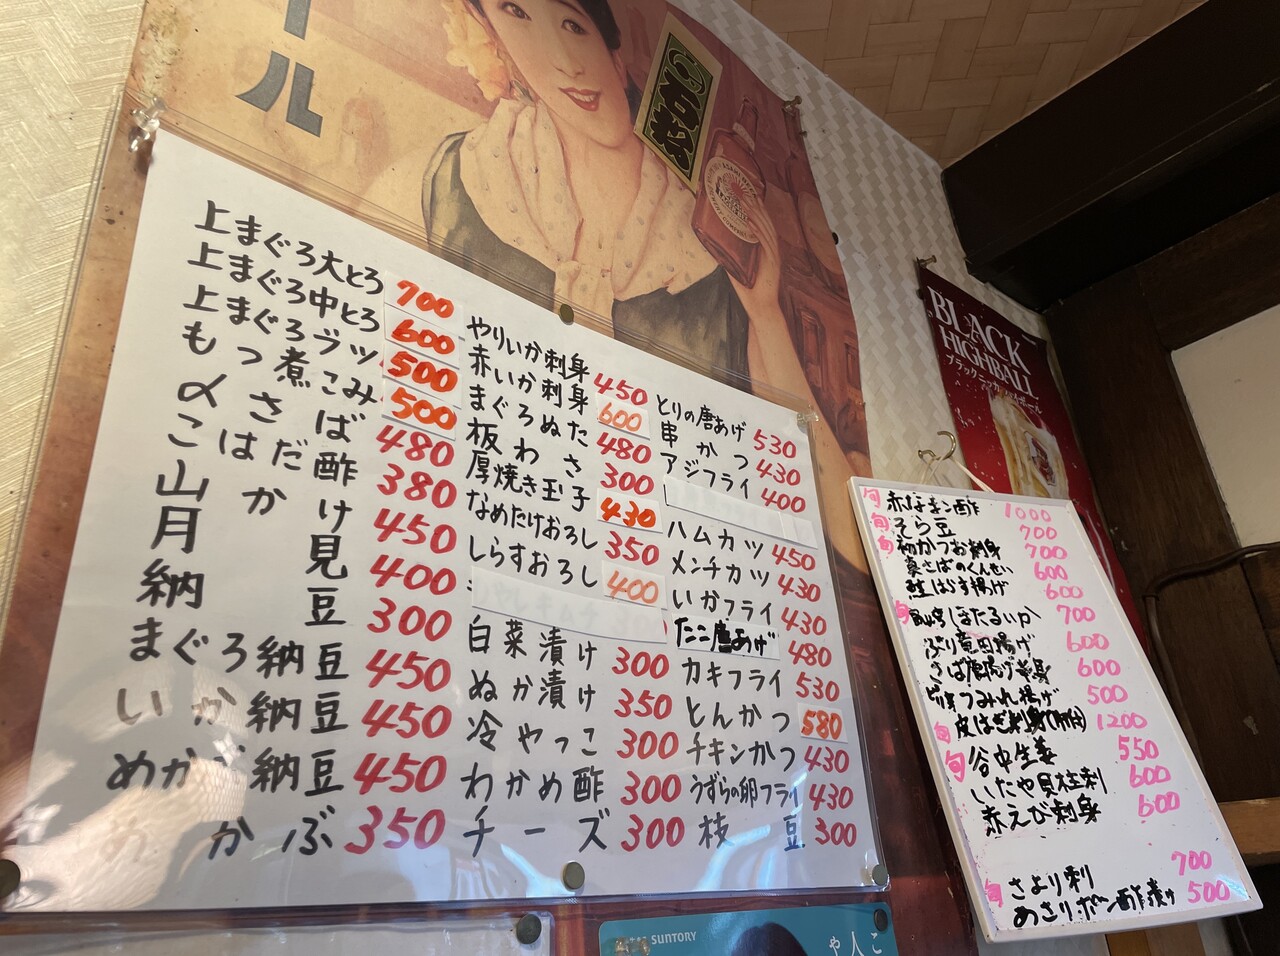 ール
上まぐろ大とろ 700
上まぐろ中とろ 600
上まぐろブツ 500
もつ煮こみ 500
〆さば 480
こはだ酢 380
山かけ 450
月見 400
納豆 300
まぐろ納豆 450
いか納豆 450
めかぶ納豆 450
めかぶ 350
やりいか刺身 450
赤いか刺身 600
まぐろぬた 480
板わさ 300
厚焼き玉子 430
なめたけおろし 350
しらすおろし 400
白菜漬け 300
ぬか漬け 350
冷やっこ 300
わかめ酢 300
チーズ 300
とりの唐あげ 530
串かつ 430
アジフライ 400
ハムカツ 450
メンチカツ 430
いかフライ 430
たこ唐あげ 480
カキフライ 530
とんかつ 580
チキンかつ 430
うずらの卵フライ 430
枝豆 300
BLACK
HIGHBALL
旬 赤なまこ酢 1000
旬 そら豆 700
旬 初かつお刺身 700
真さばのくんせい 600
鮭はらす揚げ 600
旬 ほたるいか 700
ぶり竜田揚げ 600
さば唐揚げ 600
つみれ揚げ 500
旬 皮はぎ刺身(肝付) 1200
旬 谷中生姜 550
いたや貝柱刺 600
赤えび刺身 600
旬 さより刺 700
あさりポン酢漬け 500
SUNTORY